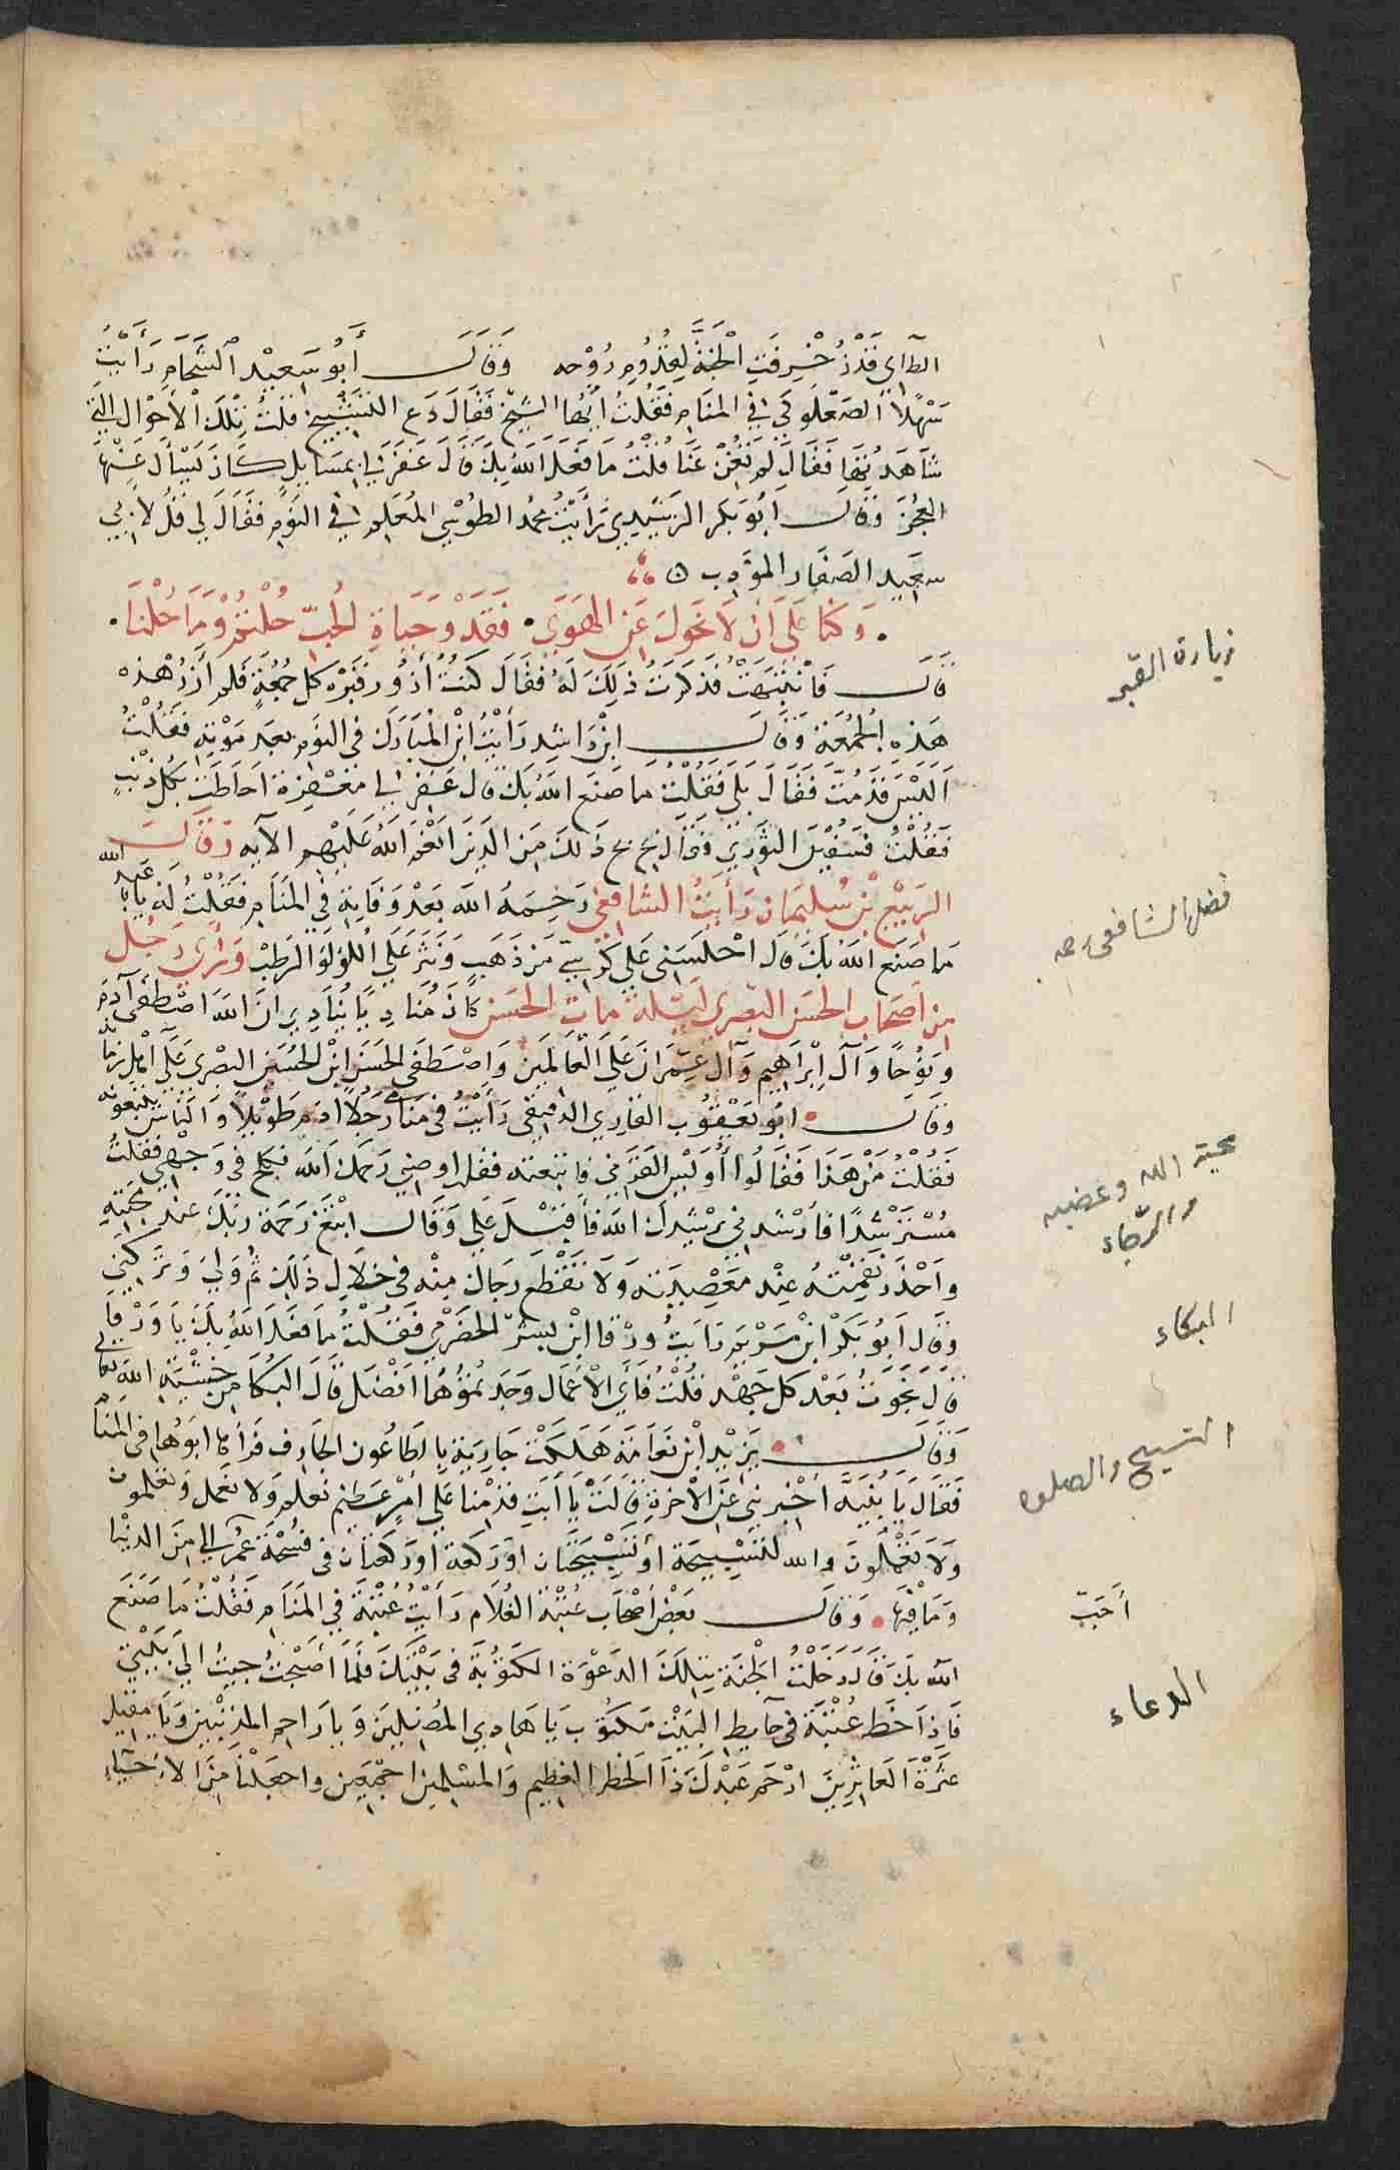 الطآاي قَدْ زُخْرِفَتِ الْجَنَّةُ لِقُدُومِ رُوْحه وَقَالَ أَبُو سَعِيْد الشَّحَّامِ رَأَيْتُ
سَهْلًا الصَعْلُوكَي في المنَامِ فَقُلْتُ أيُّهَا الشيّخ فَقَالَ دَع التَشْيِيخ قُلْتُ تِلْكَ الْأَحْوَال التي
شَاهَدْتُهَا فَقَالَ لَمْ تُغْنِ عَنَّا قُلْتُ مَا فَعَلَ اللَّهُ بِكَ قَالَ غَفَرَ لي بِمَسَايل كَانَ يَسْأل عَنْهَا
العُجْزُ وَقَالَ أَبُو بَكر الرَشَيْدِي رَأَيْتُ محمُد الطُوْسِي المُعَلِم في النَوْمِ فَقَالَ لي قُلْ لأبي
سعَيِد الصَفَّار المؤَدِب
وَكنَا عَلَى أن لَا نَحُولَ عَنِ الهَوَى فَقَدْ وَحَيَاةِ الحُبِّ حُلْتُمْ وَمَا حُلْنَا
قَالَ فَانْتَبَهْتُ فَذَكَرْتُ ذَلِكَ لَهُ فَقَالَ كُنْتُ أَزُوُر قَبْرَه كل جُمُعَةٍ فَلم أَزُرْ هْذه
هَذِهِ الجُمُعَةِ وَقَالَ ابْن رَاشِد رَأَيْتُ ابْن المُبَارَك في النَوْم بعَد مَوْتِهِ فَقُلْتُ
ألَيْسَ قَدْ مُتّ فَقَالَ بَلَى فَقُلْتُ ما صَنَعَ اللهُ بِكَ قَالَ غَفَرَ لي مغْفِرَة احَاطَت بكُل ذنْبٍ
فَقُلْتُ فسُفْيَن الثَوْرِيّ فقال بخ بخ ذَلكَ مِنَ الذينَ انْعَمَ اللهُ عَلَيْهِم الآيه وَقَالَ
الرَبِيْع بْن سُلَيْمَان رَأَيْتُ الشَافِعِي رَحِمَهُ الله بَعْد وَفَاتِهِ فِي المَنَامِ فَقُلْتُ لَهُ يَا أبا عَبد الله
مَا صَنَعَ اللهُ بِكَ قَالَ اجْلَسَنِي عَلَى كرْسِيّ مِن ذَهَبٍ وَنَثَرَ عَلَيَّ اللُؤلُؤ الرَطْبْ وَرَأى رَجُل
مِن أَصْحَابِ الحَسَن البَصْرِي لَيْلَة مَاتَ الحَسَن كَانَ مُنَادِيًا يُنَادِي انَ اللهَ اصْطَفَى آدَمَ
وَنُوْحًا وَآلَ إِبْرَاهِيم وَآل عِمْرَانَ عَلَى الْعَالَمِيْنَ وَاصْطَفَى الحَسَنَ ابْن الحُسَيْنِ البصْرِي عَلَى اهْل زمَانه
وَقَالَ ابُو يَعْقُوب القَارِي الدَقِيقِي رَأَيْتُ في مَنَامِي رَجُلًا ادَم طَوْيلًا وَالنَاسُ يتْبَعُونه
فَقُلْتُ مَنْ هَذَا فَقَالُوا أوَيْس القَرَنِي فاتبَعْته فقلت اوصني رَحِمَكَ الله فكلح في وَجْهِي فَقُلتُ
مُسْتَرْشِدًا فَارْشِدْني يُرْشِدك اللَه فأقْبَلَ عَلي وَقَال ابْتَغ رَحْمَة رَبّكَ عنْد محبتِهِ
وَاحْذَر نِقْمَتَهُ عِنْد مَعْصِيَتهِ وَلَا تَقْطَع رَجَاك مِنْه في خِلَالِ ذَلِكَ ثُم وَلى وَتَرَكَنِي
وَقَال أبُو بَكر ابْن مَرْيَم رَايتُ ورْقا ابْن بِشْر الحَضْرَمي فَقُلْتُ مَا فَعَلَ اللهُ بِكَ يَا وَرْقَا
قَالَ نَجَوْتُ بَعْد كل جَهْد قُلْتُ فَأَي الْأَعْمَال وَجَدتُمُوْهَا افْضَل قَالَ البُكَا مِن خَشْيَةِ الله تعالى
وَقَالَ يَزِيْد ابْن نَعَامَة هَلَكَتْ جَارِيَة بِالطَاعُون الجَارِف فَرَأَهَا ابُوْهَا في المَنَام
فَقَال يَا بُنَيَّة أَخْبِرِيني عَن الأخرة قَالَتْ يَا أَبَتِ قَدِمْنَا عَلى امْرٍ عَظيم نَعلَم وَلَا نَعْمَل وَتعْلَمُون
وَلَا تَعْمَلُونَ والله لتَسْبِيحَة أوْ تَسْبِيحَتَان اوْ رَكعَة اوْ رَكْعَتَان في فُسْحَة عُمْري احب الي مِنَ الدنْيا
وَمَا فِيْهَا وَقَالَ بَعْض أَصْحَاب عُتْبَة الغُلَام رَأَيْتُ عُتْبَة فِي المَنَام فَقُلْتُ مَا صَنَعَ
الله بِكَ قَال دَخَلْتُ الْجَنَّة بِتِلكَ الدَعْوَة المكتُوْبَة في بَيْتكَ فَلَمَّا أصْبَحْتُ جيتُ الي بَيْتِي
فَاِذَا خَط عُتْبَة في حَايط البَيْت مَكتُوب يَا هَادِي المُضِلِينَ وَيَا رَاحِم المُذْنِبِين وَيَا مُقِيل
عَثْرَة العَاثِرِيْنَ ارْحَم عَبْدكَ ذَا الخطر العظِيم وَالمسْلِمين اجْمَعِين واجعَلْنَا مَعَ الأحْيَاءِ
زيارة القبر
فضل الشافعى رحمه
محبة الله وغضبه
والرّجاء
البكاء
التسبيح والصلوه
أَحَبّ
الدعاء